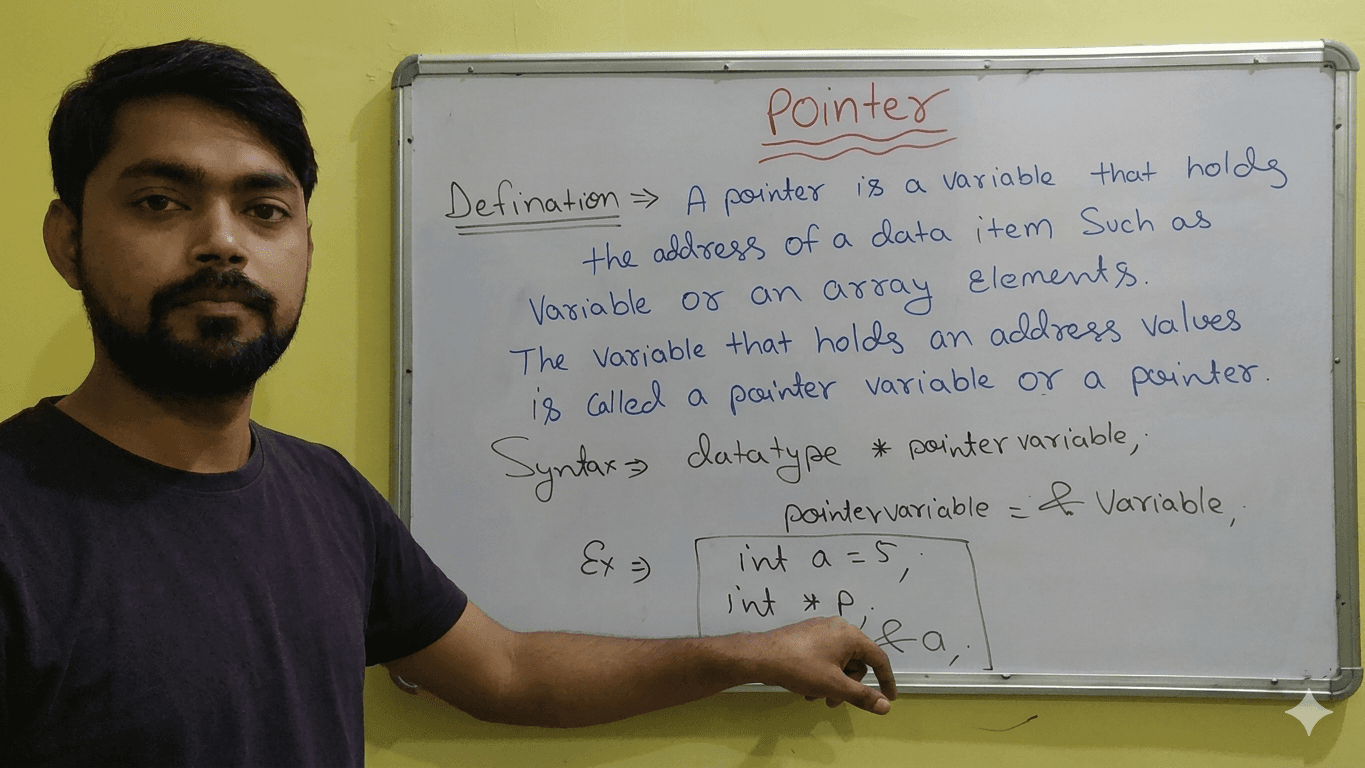 Pointer
Defination ⇒ A pointer is a variable that holds
the address of a data item Such as
Variable or an array Elements.
The variable that holds an address values
is called a pointer variable or a pointer.
Syntax ⇒ datatype * pointer variable;
pointervariable = & Variable;
Ex ⇒ int a = 5;
int * P;
& a;